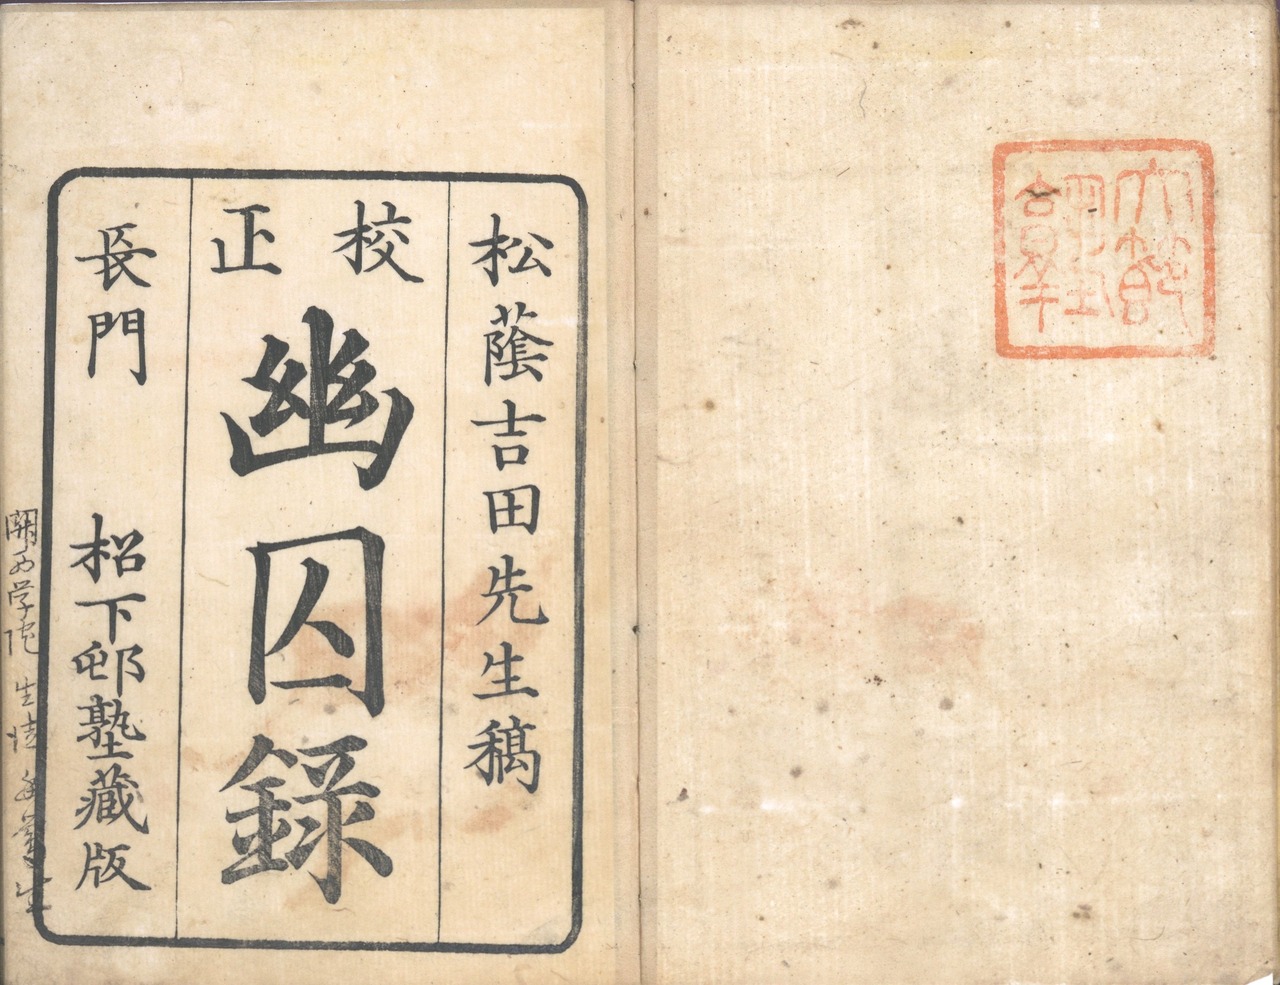 松蔭吉田先生稿
校正
幽囚録
長門 松下邨塾藏版
学院 生徒